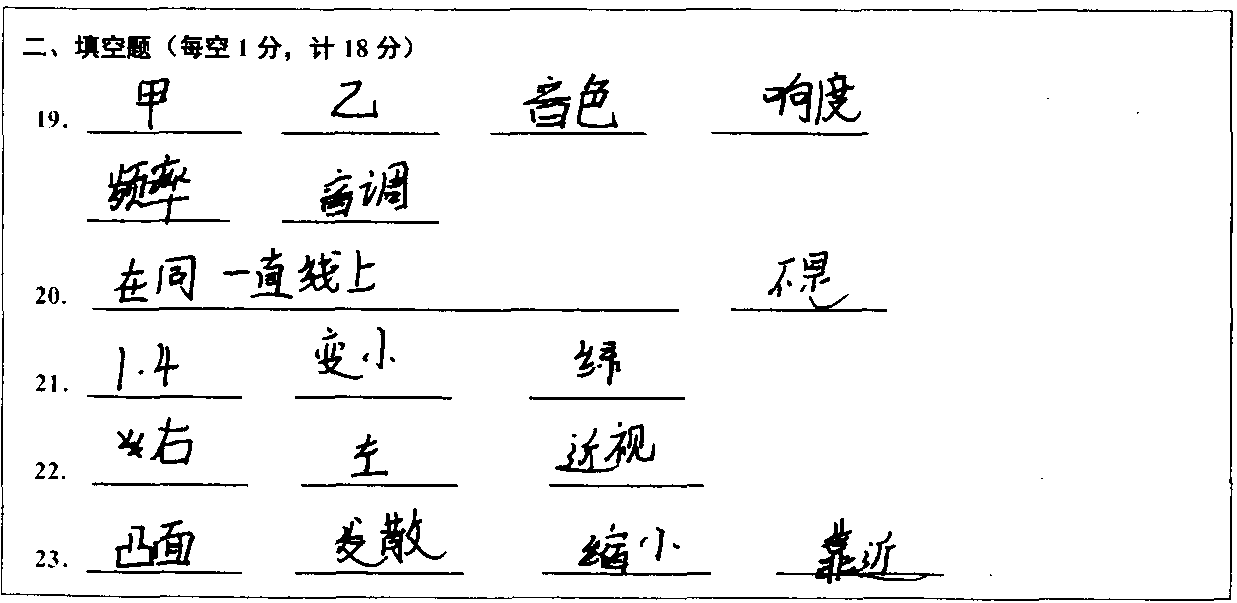 二、填空题（每空1分，计18分）
19. 甲 乙 音色 响度
频率 音调
20. 在同一直线上 不是
21. 1.4 变小 纬
22. 右 左 近视
23. 凸面 发散 缩小 靠近